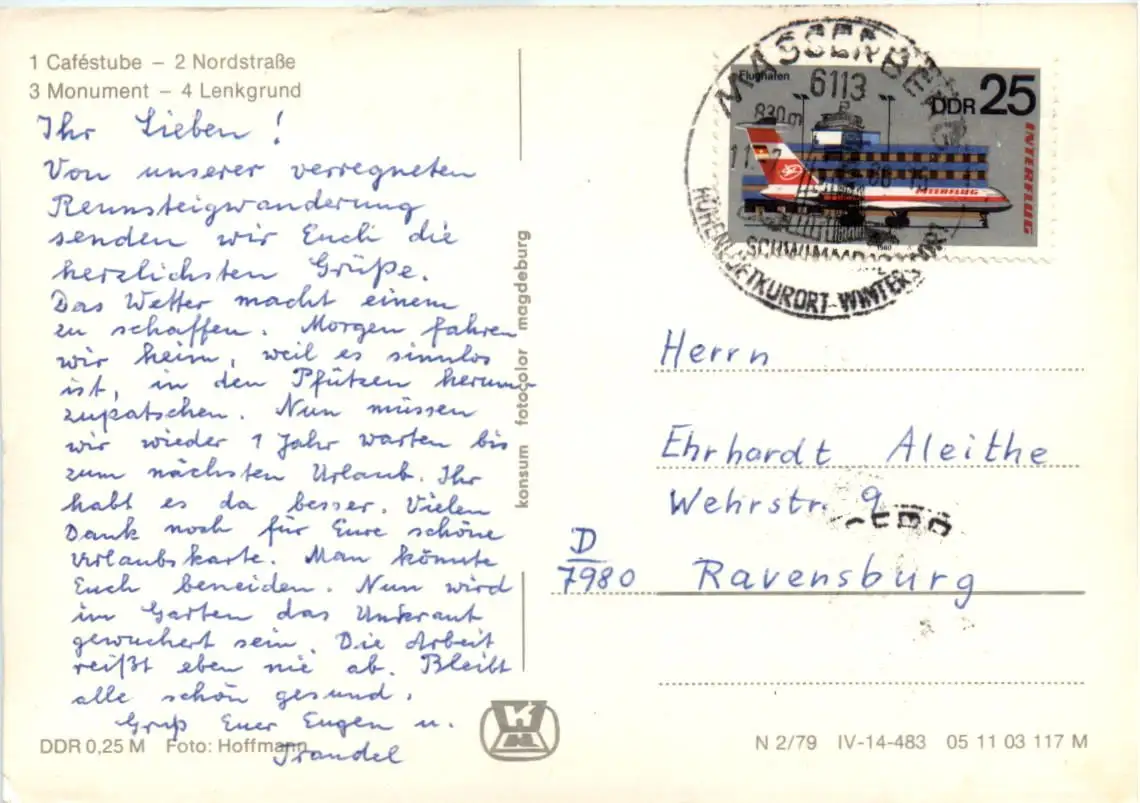 1 Caféstube – 2 Nordstraße
3 Monument – 4 Lenkgrund
Ihr Lieben!
Von unserer verregneten
Rennsteigwanderung
senden wir Euch die
herzlichsten Grüße.
Das Wetter macht einem
zu schaffen. Morgen fahren
wir heim, weil es sinnlos
ist, in den Pfützen herum-
zupatschen. Nun müssen
wir wieder 1 Jahr warten bis
zum nächsten Urlaub. Ihr
habt es da besser. Vielen
Dank noch für Eure schöne
Urlaubskarte. Man könnte
Euch beneiden. Nun wird
im Garten das Unkraut
gewuchert sein. Die Arbeit
reißt eben nie ab. Bleibt
alle schön gesund.
Gruß Euer Eugen u.
Traudel
DDR 0,25 M Foto: Hoffmann
konsum fotocolor magdeburg
MASSERBERG
6113
830m
HÖHENLUFTKURORT-WINTERSPORT
Flughafen
DDR 25
INTERFLUG
INTERFLUG
1980
Herrn
Ehrhardt Aleithe
Wehrstr. 9
D
7980 Ravensburg
N 2/79 IV-14-483 05 11 03 117 M